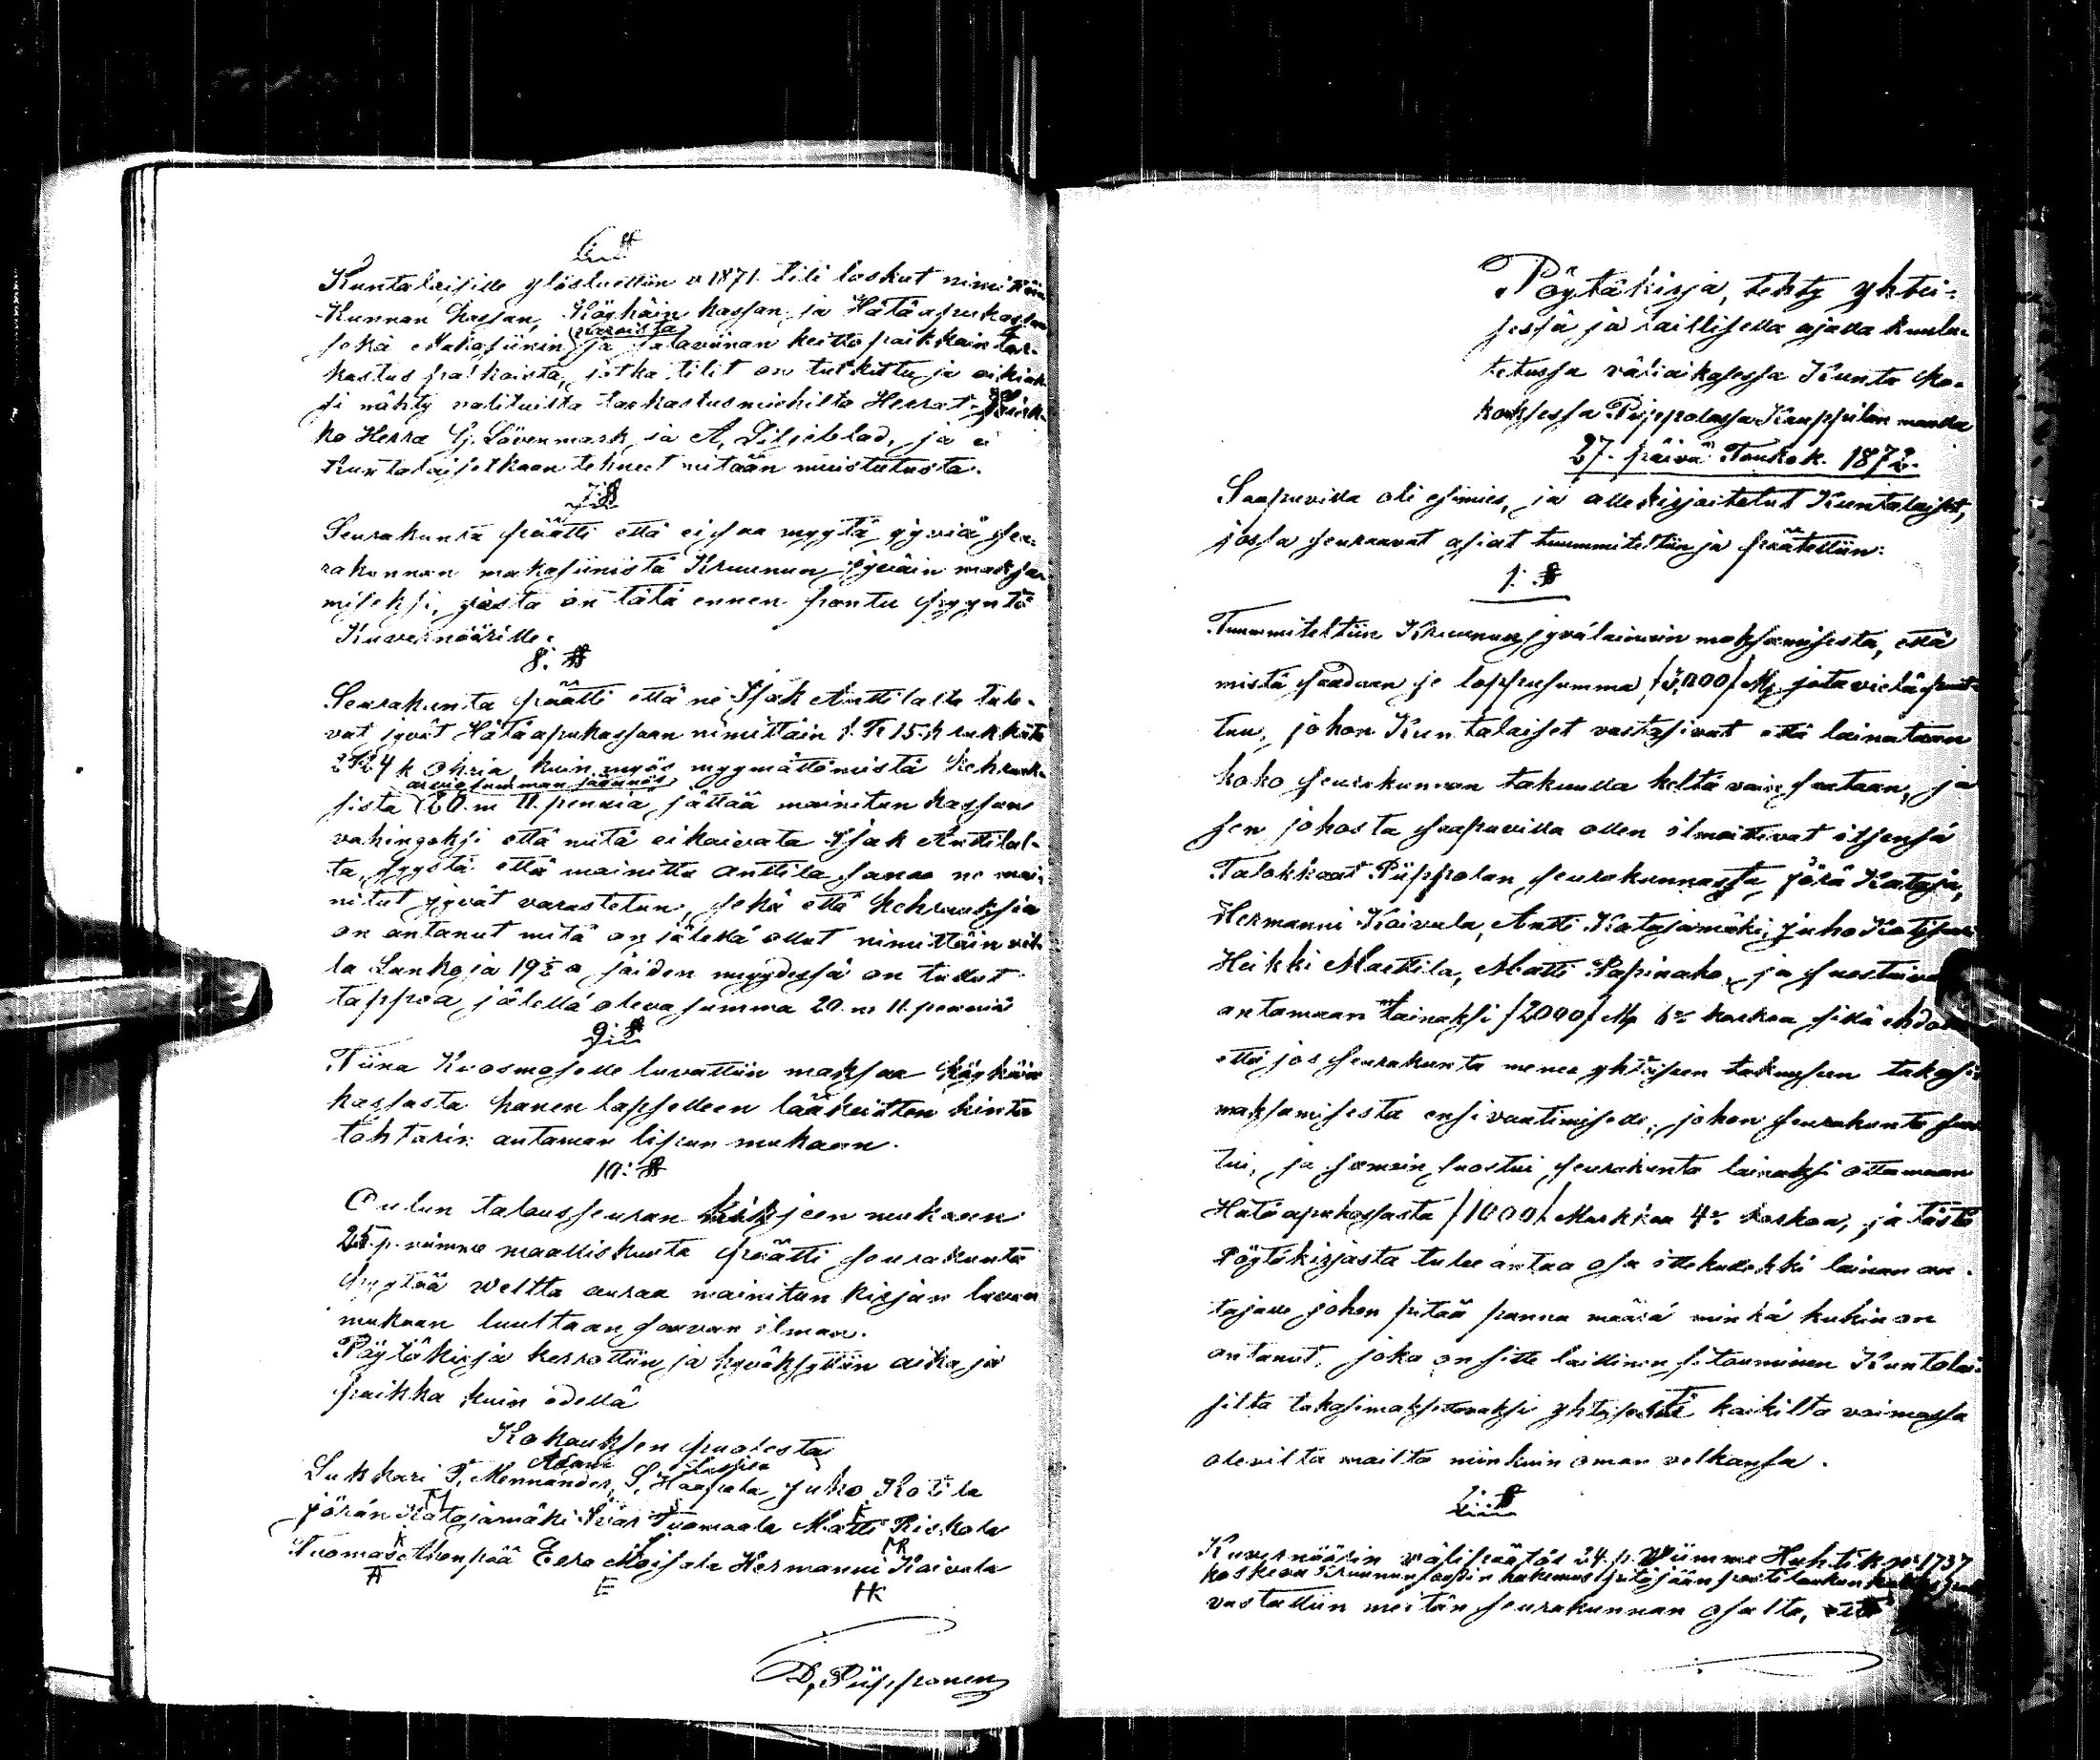 6:§
Kuntalaisille ylösluettiin v 1871 tili laskut nimittäin
Kunnan kassan, Köyhäin kassan ja Hätäapukassan
sekä Makasiinin varoista ja salaviinan keitto paikkain tar-
kastus palkoista, jotka tilit on tutkittu ja oikiak-
si nähty valituilta tarkastusmiehiltä Herrat
ko Herra G. Lövenmark ja A, Liljeblad, ja ei
Kuntalaisetkaan tehneet mitään muistutusta.
7:§
Seurakunta päätti että ei saa myytä jyviä seu-
rakunnan makasiinista Kruunun jyväin maksa-
miseksi, josta on tätä ennen pantu pyyntö
Kuvernöörille.
8:§
Seurakunta päätti että ne Isak Anttilalta tule-
vat jyvät Hätäapukassaan nimittäin 1 T 15 k rukkiita
2 T 24 k ohria kuin myös myymättömistä kehruuk-
sista arviosumman jäännös 20 m 11. penniä jättää mainitun kassan
vahingoksi että niitä ei kaivata Isak Anttilal-
ta, syystä että mainittu Anttila sanoo ne mai-
nitut jyvät varastetun, sekä että kehruuksia
on antanut mitä on jälellä ollut nimittäin vil-
la Lankoja 19½ a joiden myydessä on tullut
tappioa jälellä oleva summa 20 m 11. penniä
9:§
Tiina Kuosmaselle luvattiin maksaa köyhäin
kassasta hänen lapselleen lääkeitten hinta
tohtorin antaman lipun mukaan.
10:§
Oulun talousseuran kirjeen mukaan
25 p. viimme maaliskuuta päätti seurakunta
pyytää Weltta auraa mainitun kirjan luvan
mukaan luultaan saavan ilman.
Pöytäkirja kerrottiin ja hyväksyttiin aika ja
paikka kuin edellä
Kokouksen puolesta
Lukkari Adam F. Mennander, S. Haapala Juho Kotila
Jörän Katajamäki Ivar Tuomaala Matti Riskola
Tuomas Ahonpää Eero Moisala Hermanni Kaivola
D, Piipponen
Pöytäkirja, tehty yhtei-
sessä ja laillisella ajalla kuulu-
tetussa väliaikasessa Kunta ko-
kouksessa Piippolassa Kauppilan maalla
27. päivä Toukok. 1872.
Saapuvilla oli esimies, ja allekirjoitetut Kuntalaiset,
jossa seuraavat asiat tuummiteltiin ja päätettiin:
1:§
Tuummiteltiin Kruunun jyvälainain maksamisesta, että
mistä saadaan se loppusumma /3,000/ Mk jota vielä puut-
tuu, johon Kuntalaiset vastasivat että lainataan
koko seurakunnan takuulla keltä vain saataan, ja
sen johosta saapuvilla ollen ilmoittivat itsensä
Talokkaat Piippolan seurakunnasta, Jörä Kataja,
Hermanni Kaivola, Antti Katajamäki, Juho
Heikki Mattila, Matti Papinaho, ja suostuivat
antamaan lainaksi /2000/ Mk 6% korkoa sillä ehdolla
että jos seurakunta menee yhteiseen takuuseen takasin
maksamisesta ensi vaatimiselle, johon seurakunta suos-
tui, ja samoin suostui seurakunta lainaksi ottamaan
Hätäapukassasta /1000/ Markkaa 4% korkoa, ja tästä
Pöytäkirjasta tulee antaa osa ittekullekki lainan an-
tajalle johon pitää panna määrä minkä kukin on
antanut, joka on sitte laillinen sitoumus Kuntalai-
silta takasimaksettavaksi yhteisesti kaikilta voimassa
olevilta mailta niinkuin oman velkansa.
2:§
Kuvernöörin välipäätös 24. p. Wiimme Huhtik. N:o 1737
koskeva Kruununvoudin hakemus
vastattiin meitän seurakunnan osalta, että